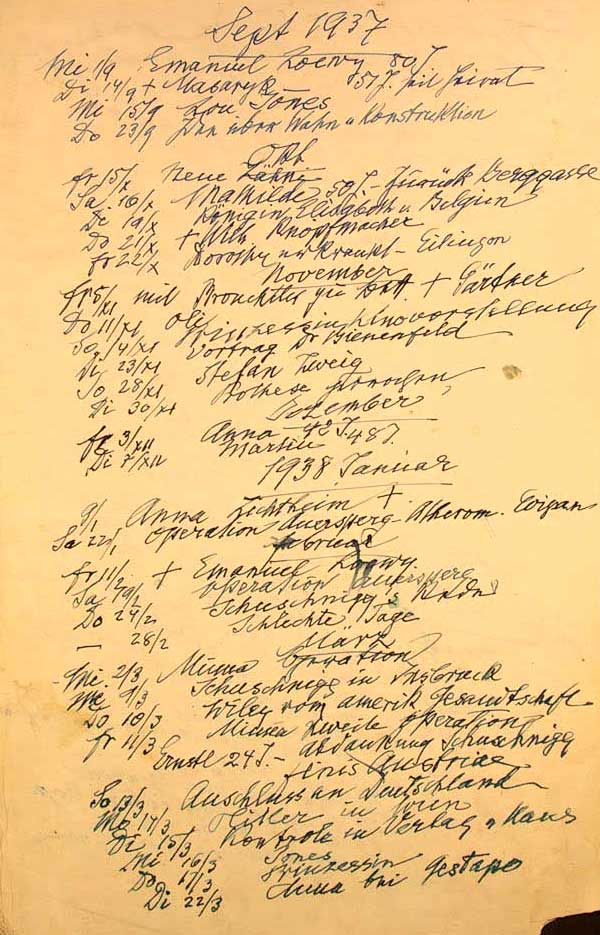 Sept 1937
Mi 1/9 Emanuel Loewy 80 J.
Di 14/9 + Masaryk 51 J. seit Privat
Mi 15/9 Lou. Jones
Do 23/9 Wahn u Konstruktion
Okt
Fr 15/x Neue Zähne
Sa 16/x Mathilde 50 J. - Zurück Berggasse
Di 19/x Königin Elisabeth v. Belgien
Do 21/x + Knopfmacher
Fr 22/x Dorothy Krankh - Eitingon
November
Fr 5/XI mit Bronchitis zu Bett + Gärtner
Do 11/XI Prinzessin Kinovorstellung
So 14/XI Vortrag Dr Bienenfeld
Di 23/XI Stefan Zweig
So 28/XI Prothese gebrochen
Di 30/XI
Dezember
Fr 3/XII Anna 42 J.
Di 7/XII Martin 48 J.
1938 Januar
9/1 Anna Lichtheim +
Sa 22/1 Operation Auersperg - Atherom. Evipan
Februar
Fr 11/2 + Emanuel Loewy
Sa 19/2 Operation Auersperg
Do 24/2 Schuschnigg's Rede
— 28/2 Schlechte Tage
März
Mi. 2/3 Minna Operation
Mi 9/3 Schuschnigg in Insbruck
Do 10/3 Wiley vom amerik Gesandtschaft
Fr 11/3 Minna zweite Operation
Ernstl 24 J. - Abdankung Schuschnigg
finis Austriae
So 13/3 Anschluss an Deutschland
Mo 14/3 Hitler in Wien
Di 15/3 Kontrole in Verlag u Haus
Mi 16/3 Jones
Do 17/3 Prinzessin
Di 22/3 Anna bei Gestapo